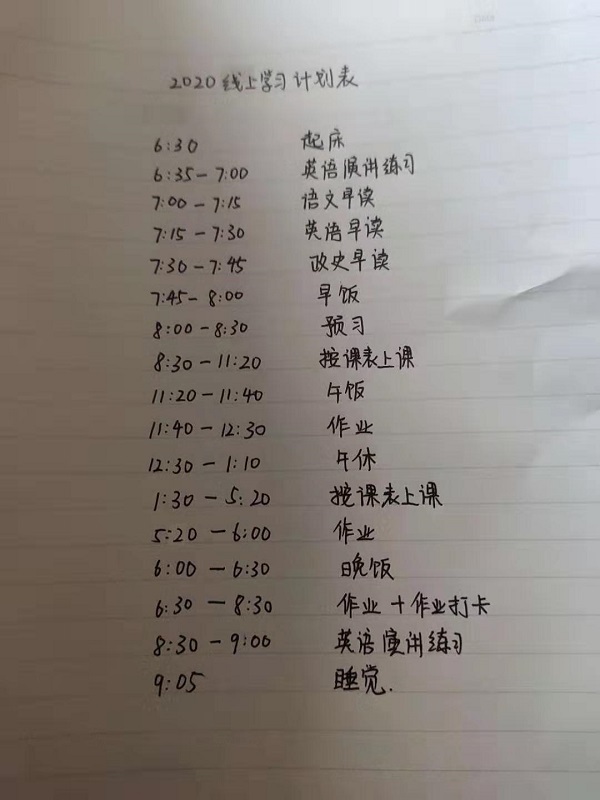 2020线上学习计划表
6:30 起床
6:35-7:00 英语演讲练习
7:00-7:15 语文早读
7:15-7:30 英语早读
7:30-7:45 政史早读
7:45-8:00 早饭
8:00-8:30 预习
8:30-11:20 按课表上课
11:20-11:40 午饭
11:40-12:30 作业
12:30-1:10 午休
1:30-5:20 按课表上课
5:20-6:00 作业
6:00-6:30 晚饭
6:30-8:30 作业+作业打卡
8:30-9:00 英语演讲练习
9:05 睡觉.